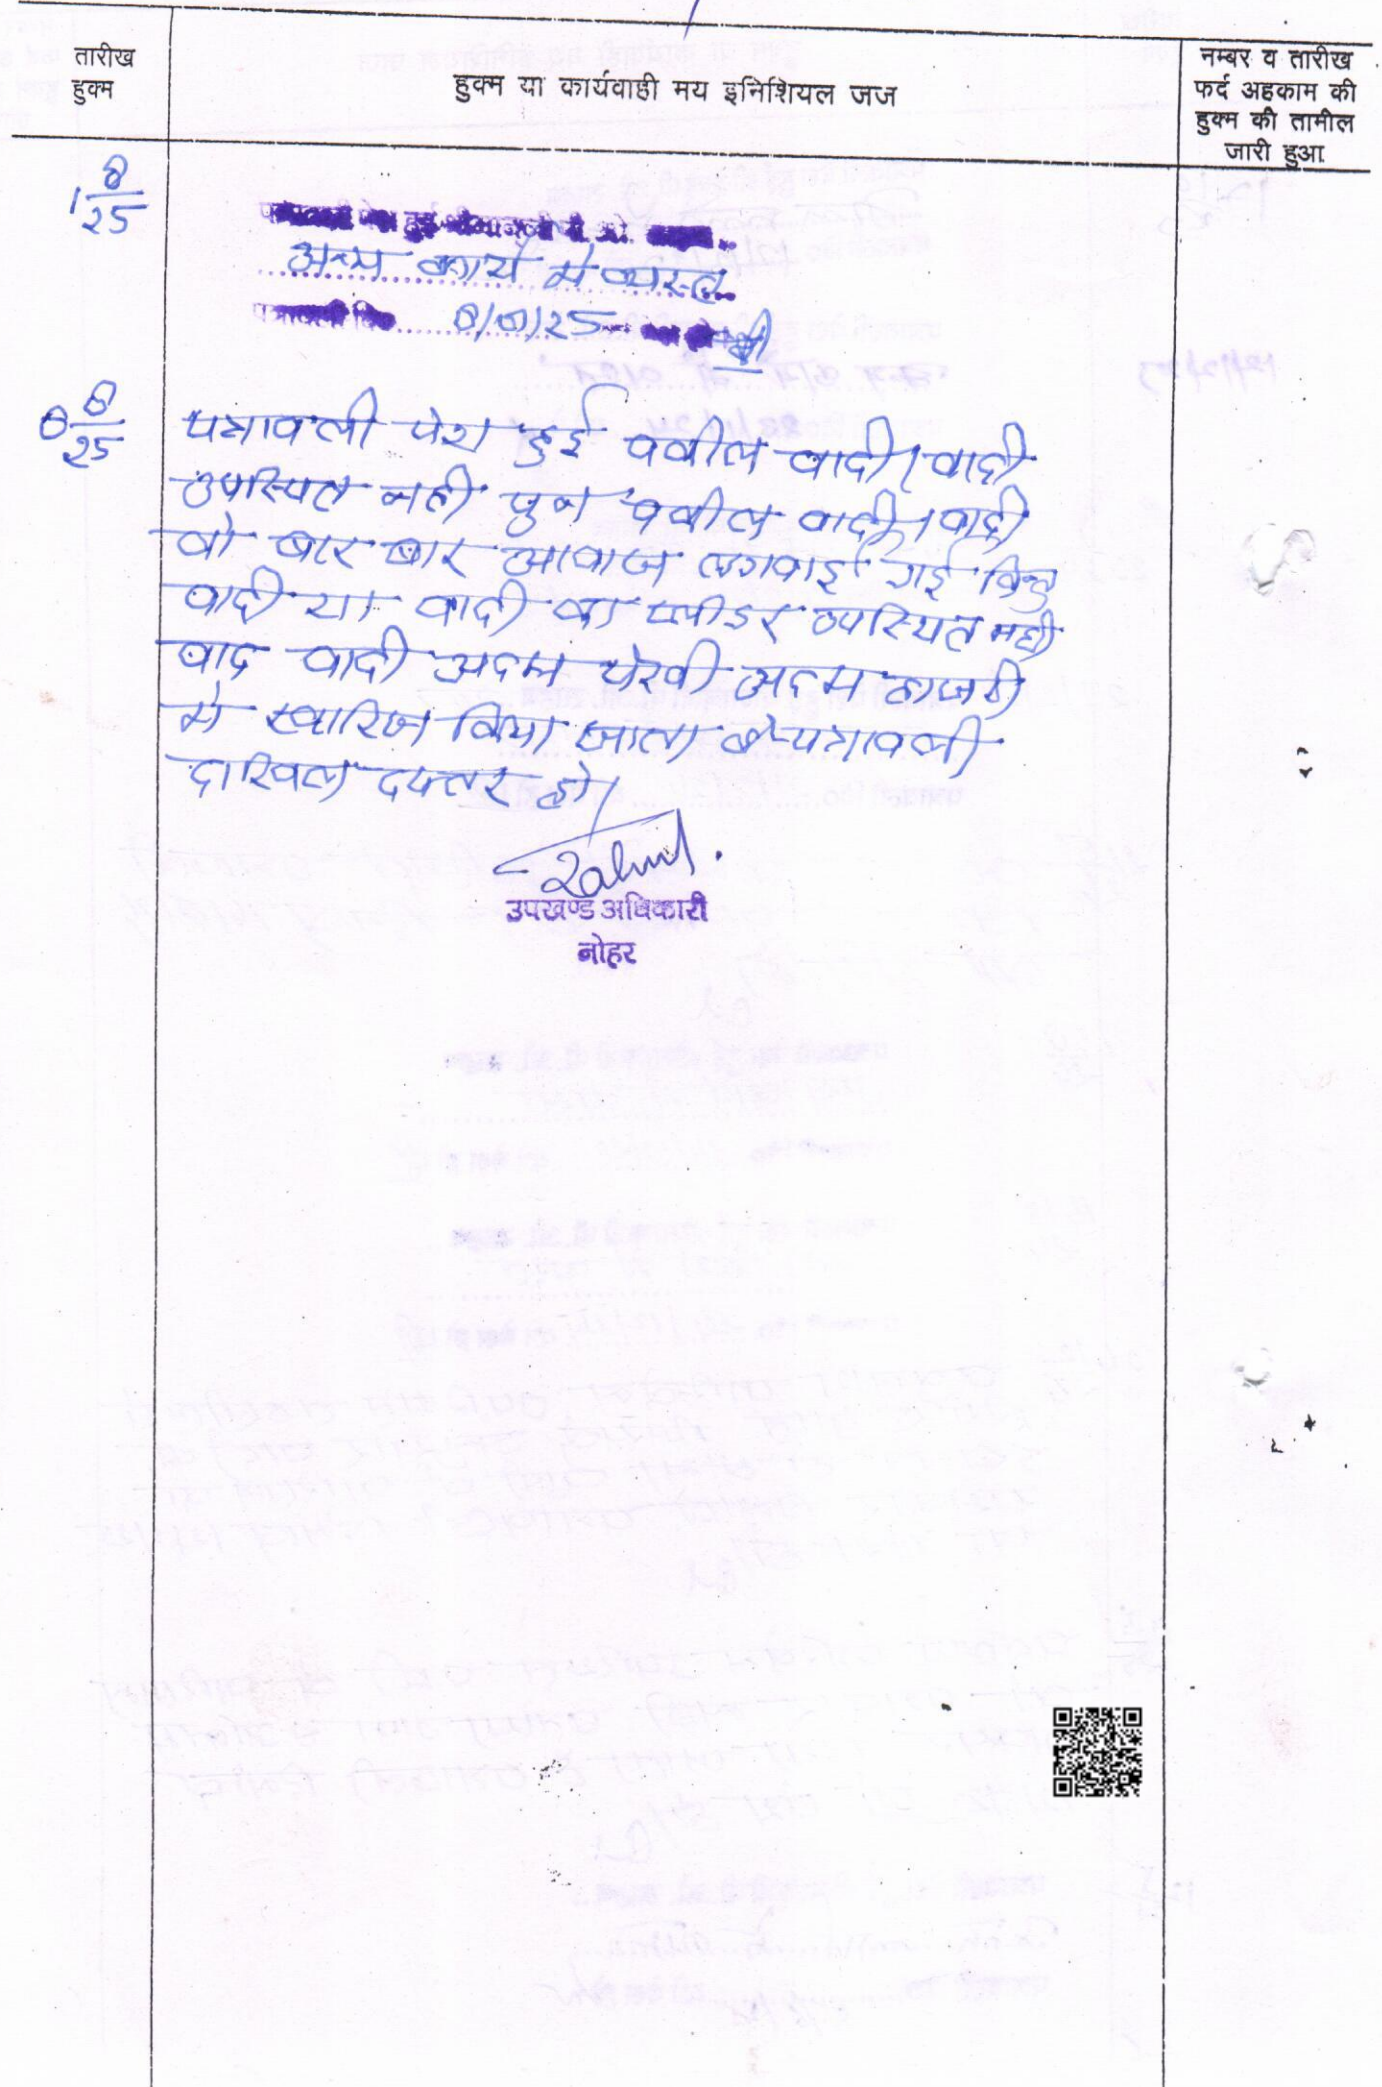 तारीख
हुक्म
हुक्म या कार्यवाही मय इनिशियल जज
नम्बर व तारीख
फर्द अहकाम की
हुक्म की तामील
जारी हुआ
1 8/25
पत्रावली पेश हुई श्रीमान पी. ओ.
अन्य कार्य मे व्यस्त
पत्रावली दि० 8/8/25
8 8/25
पत्रावली पेश हुई वकील वादी/वादी
उपस्थित नही पुन वकील वादी/वादी
को बार बार आवाज लगवाई गई किन्तु
वादी या वादी का प्लीडर उपस्थित नही
वाद वादी अदम पेरवी अदम हाजरी
मे खारिज किया जाता है पत्रावली
दाखिल दफ्तर हो।
उपखण्ड अधिकारी
नोहर